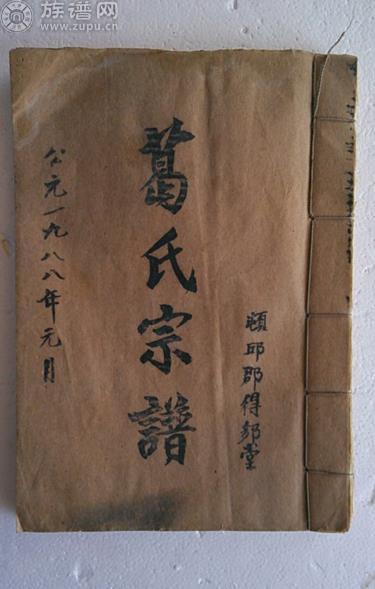 族谱网
www.zupu.cn
頓邱郡得邻堂
葛氏宗譜
公元一九八八年元月